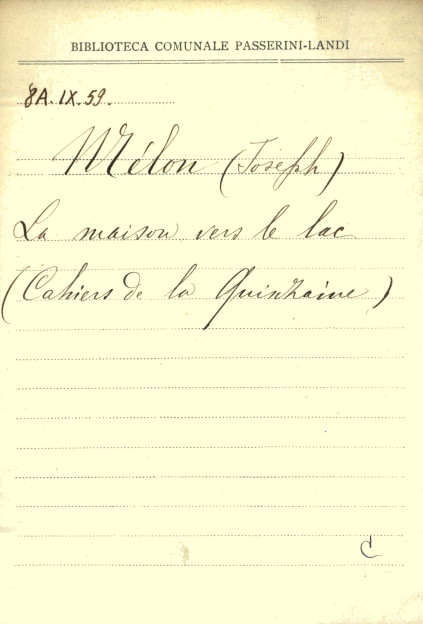 BIBLIOTECA COMUNALE PASSERINI-LANDI
8A.IX.59.
Mélon (Joseph)
La maison vers le lac
(Cahiers de la Quinzaine)
C